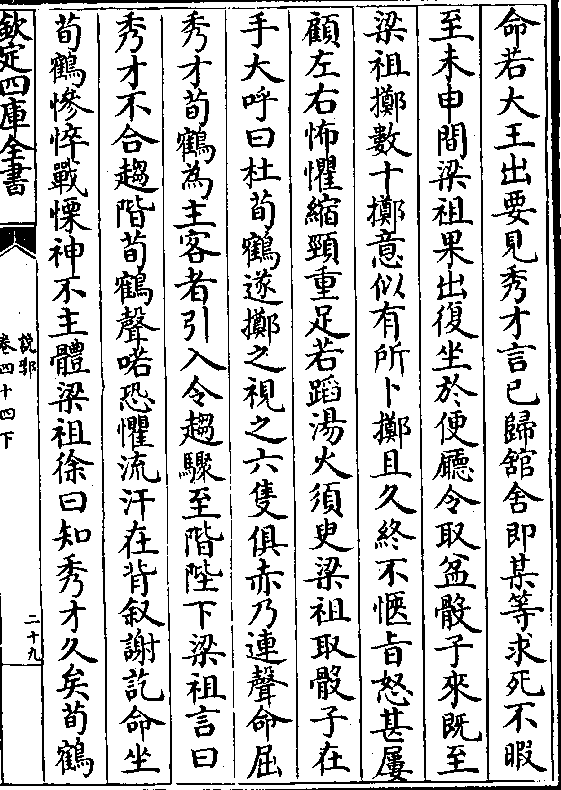 命若大王出要見秀才言已歸舘舍即某等求死不暇
至未申間梁祖果出復坐於便廳令取盆骰子來既至
梁祖擲數十擲意似有所卜擲且久終不愜旨怒甚屢
顧左右怖懼縮頸重足若蹈湯火須臾梁祖取骰子在
手大呼曰杜荀鶴遂擲之視之六隻俱赤乃連聲命屈
秀才荀鶴為主客者引入令趨驟至階陛下梁祖言曰
秀才不合趨階荀鶴聲喏恐懼流汗在背叙謝訖命坐
荀鶴慘悴戰慄神不主體梁祖徐曰知秀才久矣荀鶴
欽定四庫全書
説郛
卷四十四下
二十九